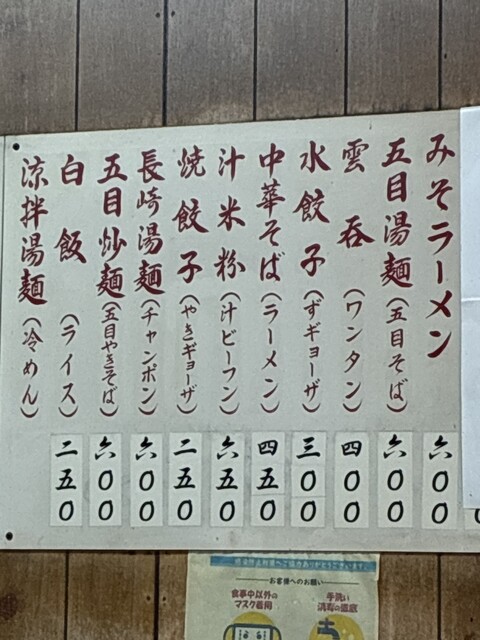 みそラーメン 六〇〇
五目湯麺(五目そば) 六〇〇
雲呑(ワンタン) 四〇〇
水餃子(ずギョーザ) 三〇〇
中華そば(ラーメン) 四五〇
汁米粉(汁ビーフン) 六五〇
焼餃子(やきギョーザ) 二五〇
長崎湯麺(チャンポン) 六〇〇
五目炒麺(五目やきそば) 六〇〇
白飯(ライス) 二五〇
涼拌湯麺(冷めん)
お客様へのお願い
食事中以外の
マスク着用
手洗い
消毒の徹底